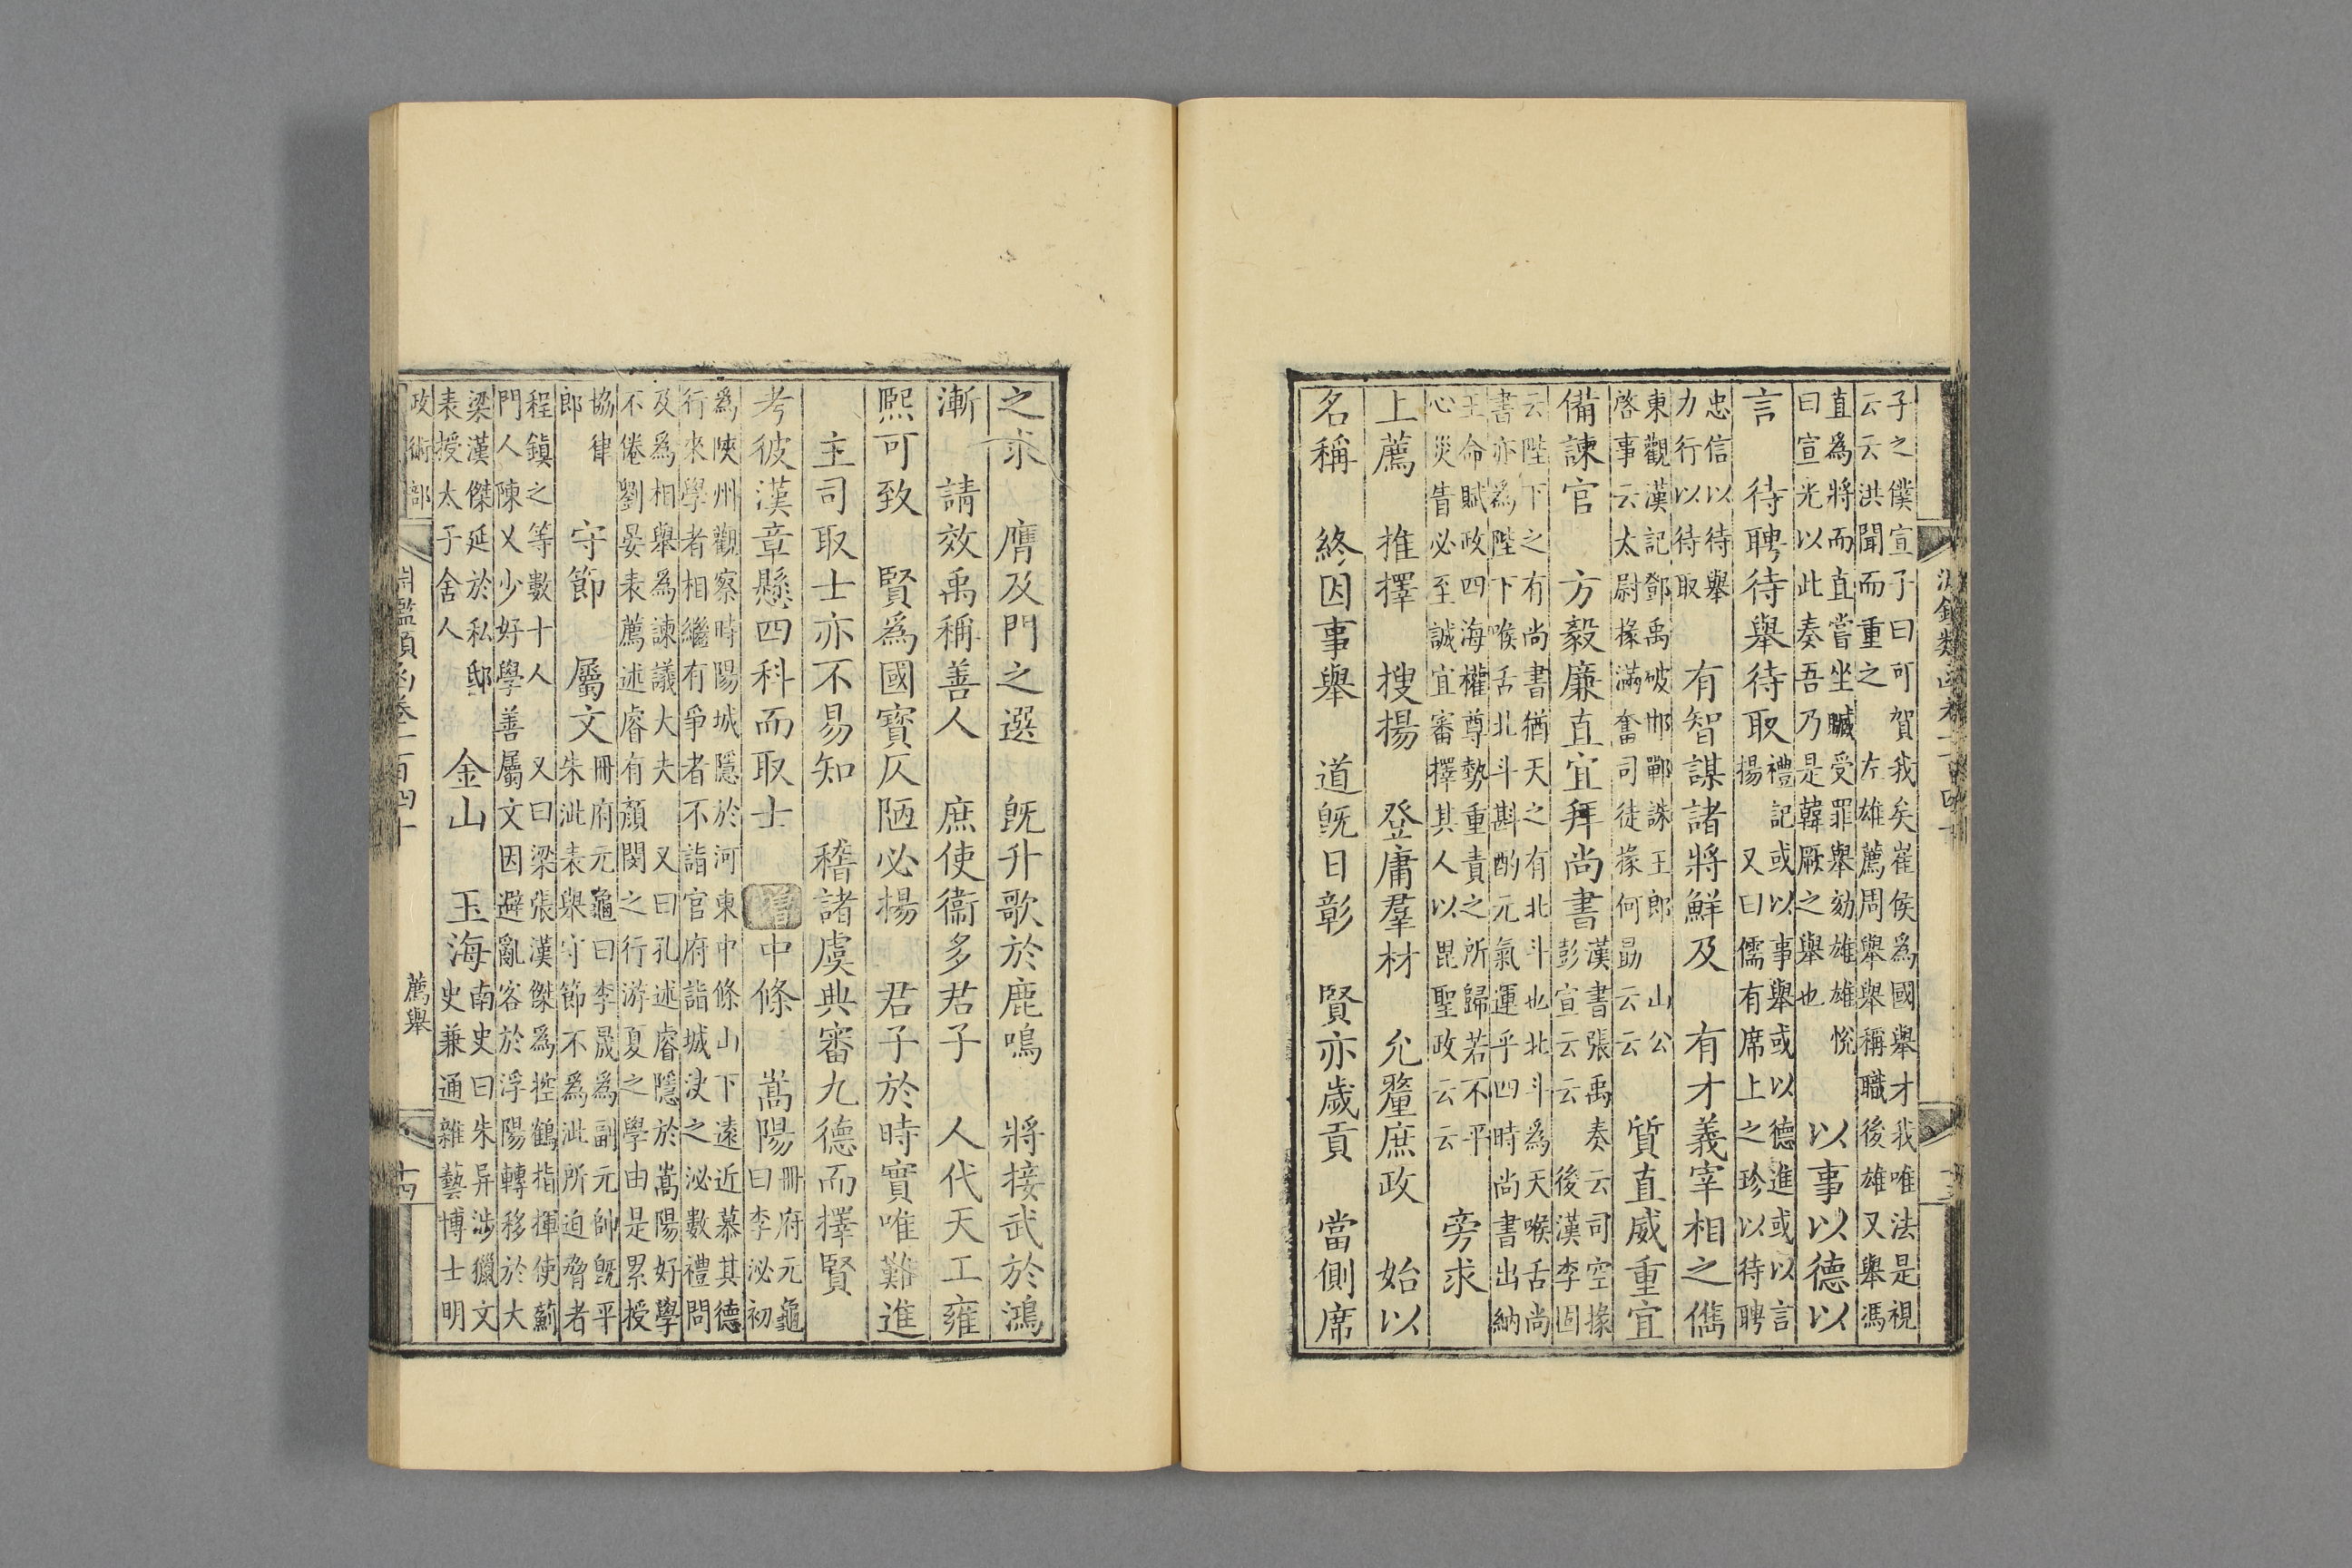 子之僕宣子曰可賀我矣崔侯為國舉才我唯法是視
云云洪聞而重之 左雄薦周舉舉稱職後雄又舉馮
直為將而直嘗坐贓受罪舉劾雄雄悅
曰宣光以此奏吾乃是韓厥之舉也 以事以德以
言 待聘待舉待取 禮記或以事舉或以德進或以言
揚 又曰儒有席上之珍以待聘
忠信以待舉
力行以待取 有智謀諸將鮮及 有才義宰相之儁
東觀漢記鄧禹破邯鄲誅王郎 山公
啓事云太尉掾滿奮司徒掾何勗云云 質直威重宜
備諫官 方毅廉直宜拜尚書 漢書張禹奏云司空掾
彭宣云云 後漢李固
云陛下之有尚書猶天之有北斗也北斗為天喉舌尚
書亦為陛下喉舌北斗斟酌元氣運乎四時尚書出納
王命賦政四海權尊勢重責之所歸若不平
心災眚必至誠宜審擇其人以毘聖政云云 旁求
上薦 推擇 搜揚 登庸羣材 允釐庶政 始以
名稱 終因事舉 道旣日彰 賢亦歲貢 當側席
之求 膺及門之選 旣升歌於鹿鳴 將接武於鴻
漸 請效禹稱善人 庶使衞多君子 人代天工雍
熙可致 賢為國寶仄陋必揚 君子於時實唯難進
主司取士亦不易知 稽諸虞典審九德而擇賢
考彼漢章懸四科而取士 增 中條 嵩陽 冊府元龜
曰李泌初
為陝州觀察時陽城隱於河東中條山下遠近慕其德
行來學者相繼有爭者不詣官府詣城決之泌數禮問
及為相舉為諫議大夫 又曰孔述睿隱於嵩陽好學
不倦劉晏表薦述睿有顏閔之行游夏之學由是累授
協律
郎 守節 屬文 冊府元龜曰李晟為副元帥旣平
朱泚表舉守節不為泚所迫脅者
程鎮之等數十人 又曰梁張漢傑為控鶴指揮使薊
門人陳乂少好學善屬文因避亂客於浮陽轉移於大
梁漢傑延於私邸
表授太子舍人 金山 玉海 南史曰朱异涉獵文
史兼通雜藝博士明
政術部 淵鑑類函卷一百四十 薦舉 十四